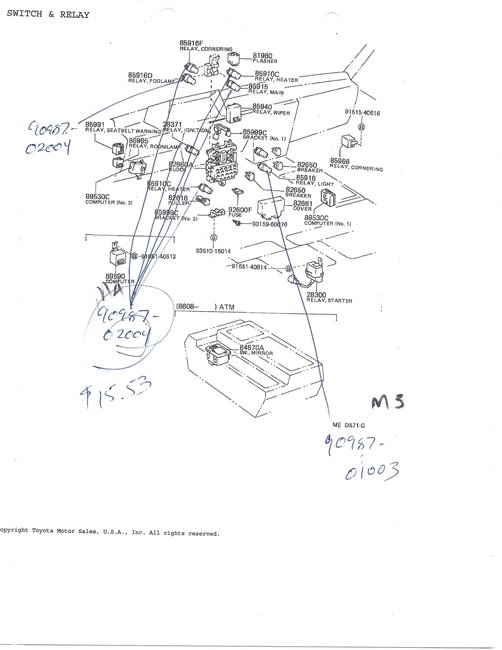 SWITCH & RELAY
85916F
RELAY, CORNERING
81980
FLASHER
85916D
RELAY, FOGLAMP
85910C
RELAY, HEATER
85915
RELAY, MAIN
85940
RELAY, WIPER
91615-40616
90987-
02004
85991
RELAY, SEATBELT WARNING
28371
RELAY, IGNITION
85969C
BRACKET (No. 1)
85985
RELAY, ROOMLAMP
82660A
BLOCK
82650
BREAKER
85966
RELAY, CORNERING
85916
RELAY, LIGHT
85910C
RELAY, HEATER
82650
BREAKER
89530C
COMPUTER (No. 2)
82616
PULLER
82661
COVER
85969C
BRACKET (No. 2)
82600F
FUSE
89530C
COMPUTER (No. 1)
90159-60076
91651-40612
93510-15014
91651-40814
89590
COMPUTER
28300
RELAY, STARTER
90987-
02004
(8608— ) ATM
84870A
SW, MIRROR
$15.53
M3
ME D571-G
90987-
01003
opyright Toyota Motor Sales, U.S.A., Inc. All rights reserved.